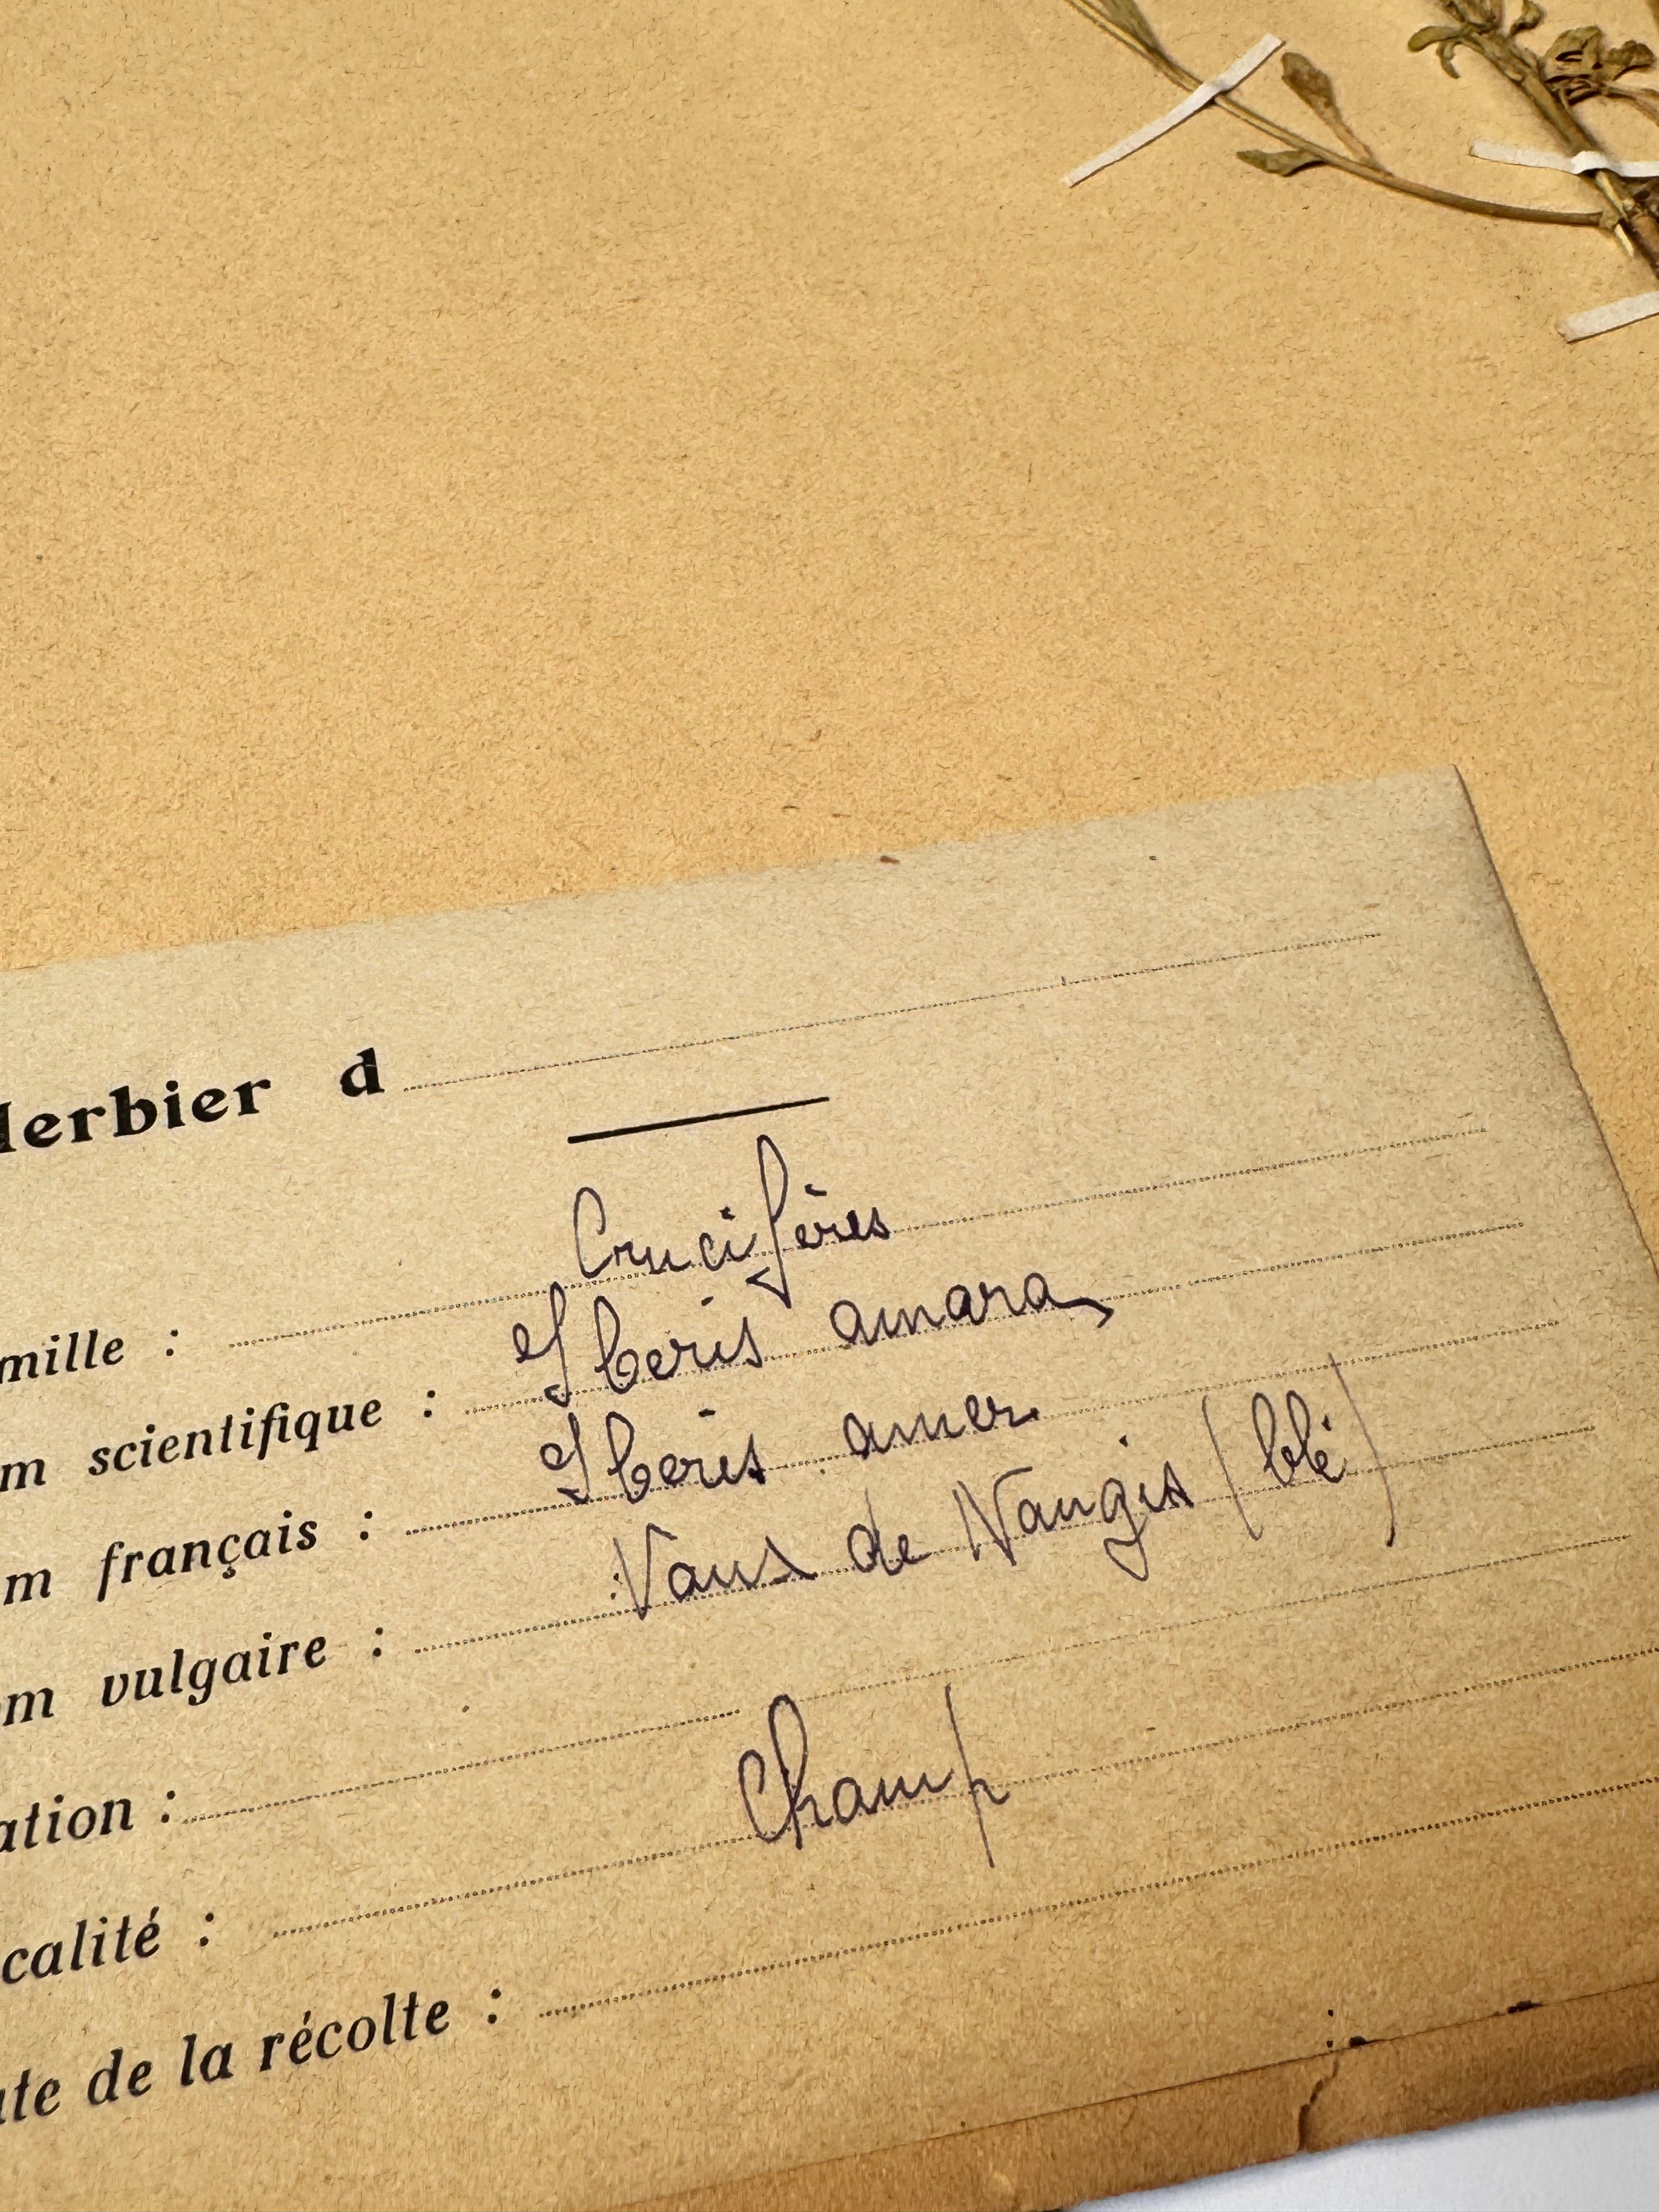 Herbier d
mille : Crucifères
m scientifique : Iberis amara
m français : Iberis amer
om vulgaire :
ation : Vaux de Nangis (blé)
calité : Champ
ate de la récolte :